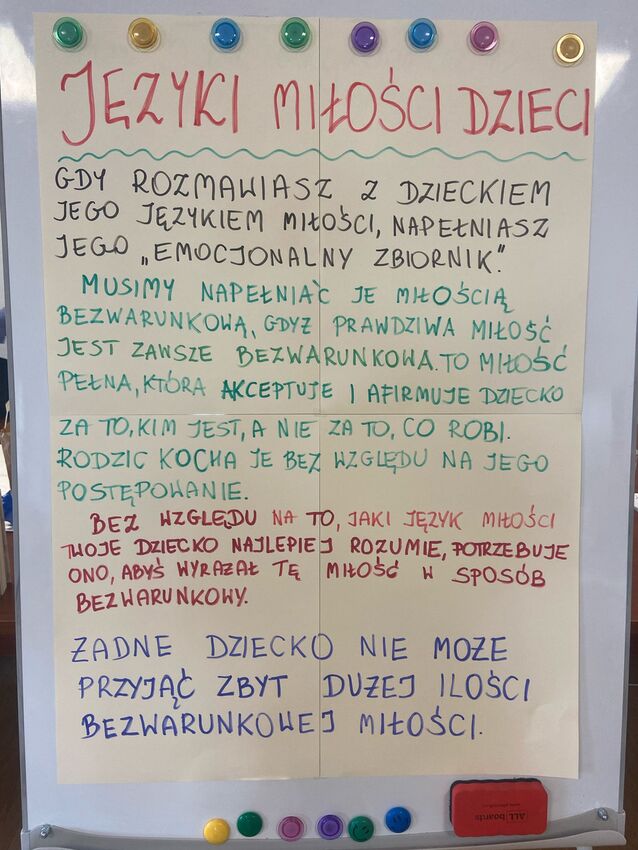 JĘZYKI MIŁOŚCI DZIECI
GDY ROZMAWIASZ Z DZIECKIEM
JEGO JĘZYKIEM MIŁOŚCI, NAPEŁNIASZ
JEGO „EMOCJONALNY ZBIORNIK".
MUSIMY NAPEŁNIAĆ JE MIŁOŚCIĄ
BEZWARUNKOWĄ, GDYŻ PRAWDZIWA MIŁOŚĆ
JEST ZAWSZE BEZWARUNKOWA. TO MIŁOŚĆ
PEŁNA, KTÓRA AKCEPTUJE I AFIRMUJE DZIECKO
ZA TO, KIM JEST, A NIE ZA TO, CO ROBI.
RODZIC KOCHA JE BEZ WZGLĘDU NA JEGO
POSTĘPOWANIE.
BEZ WZGLĘDU NA TO, JAKI JĘZYK MIŁOŚCI
TWOJE DZIECKO NAJLEPIEJ ROZUMIE, POTRZEBUJE
ONO, ABYŚ WYRAŻAŁ TĘ MIŁOŚĆ W SPOSÓB
BEZWARUNKOWY.
ŻADNE DZIECKO NIE MOŻE
PRZYJĄĆ ZBYT DUŻEJ ILOŚCI
BEZWARUNKOWEJ MIŁOŚCI.
ALL boards